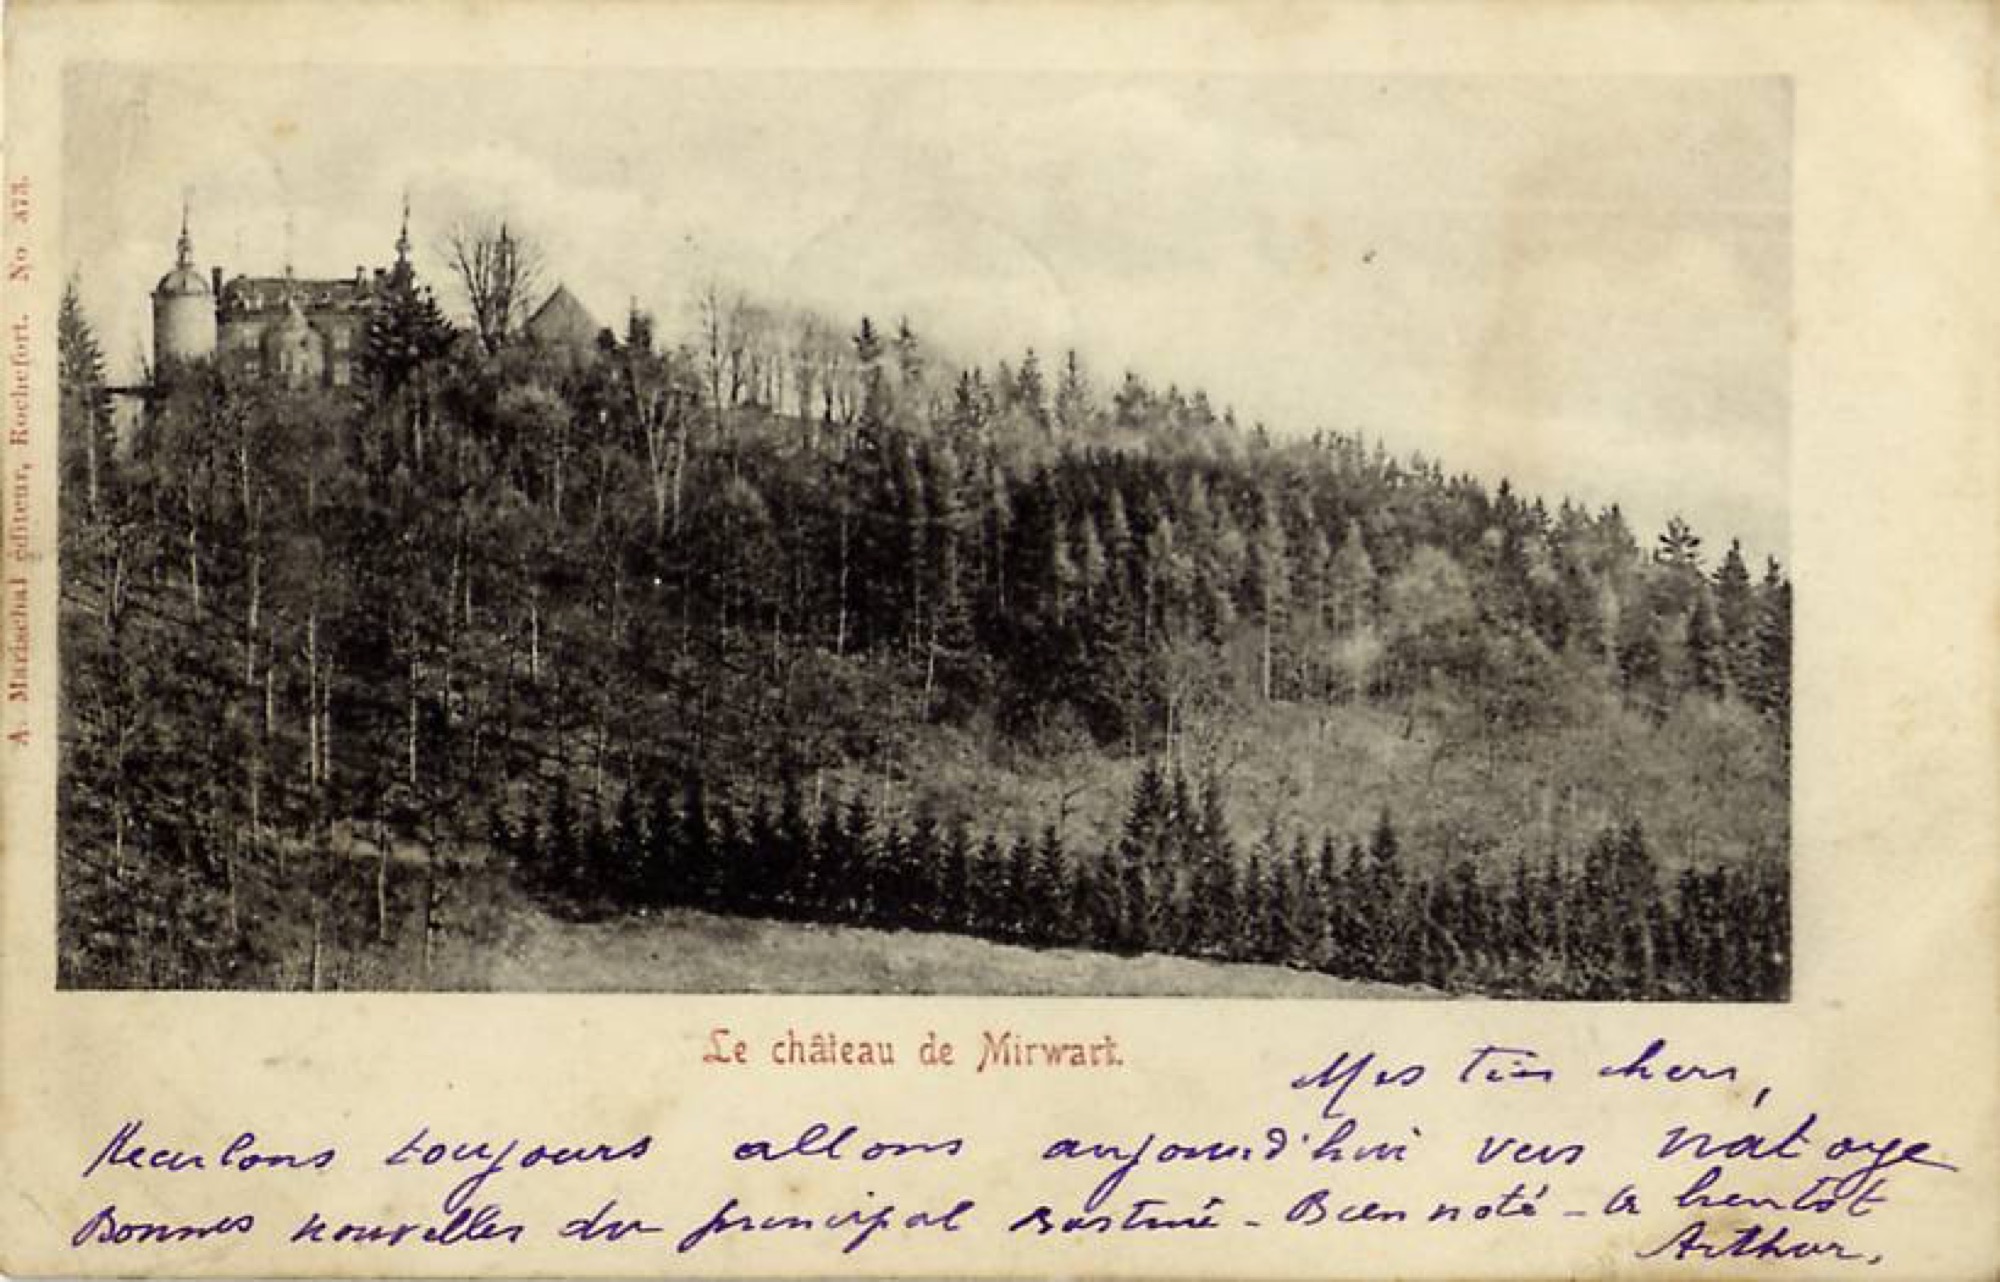 A. Marischal éditeur, Rochefort. No 373.
Le château de Mirwart.
Mes très chers,
Reculons toujours allons aujourd'hui vers Natoye
Bonnes nouvelles du principal - Bien noté - A bientôt
Arthur.